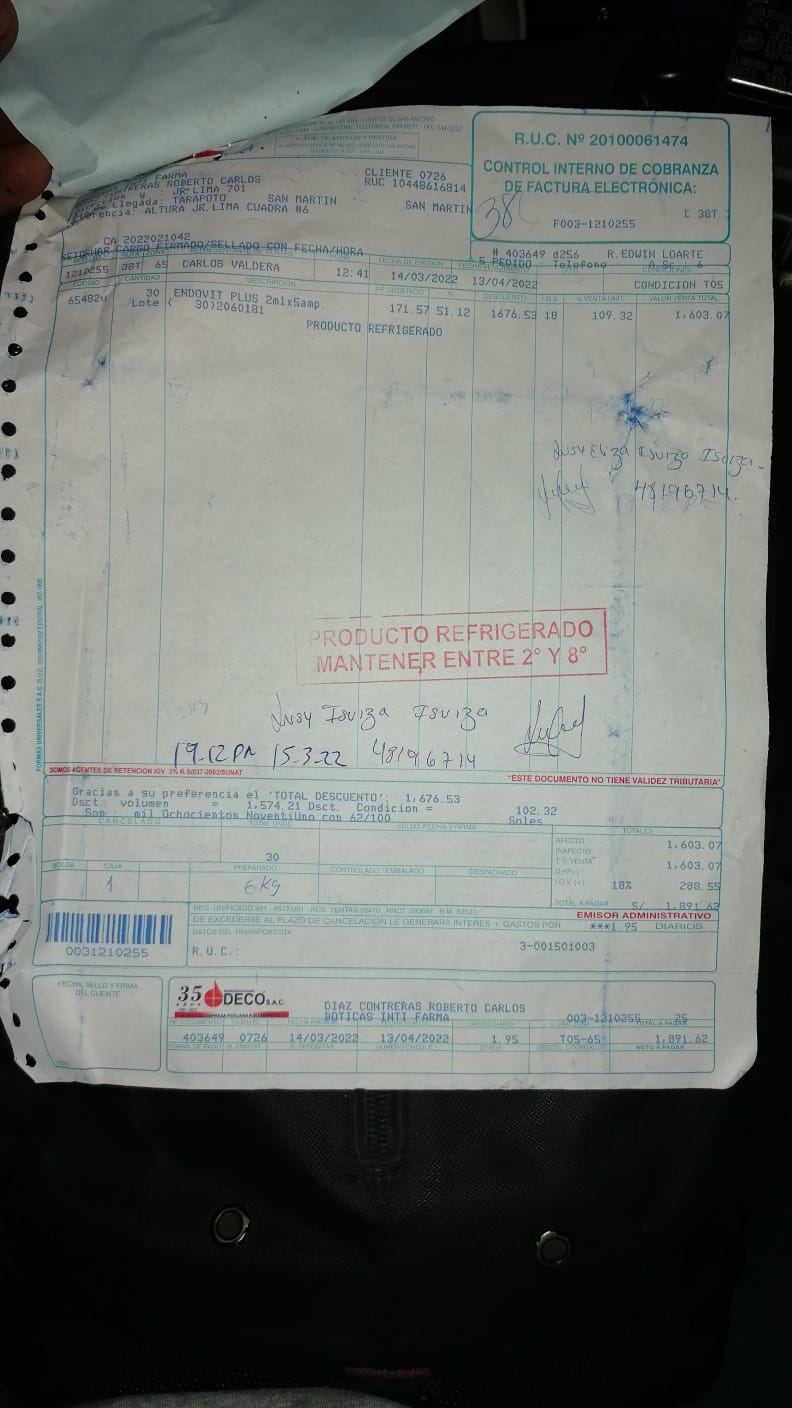 R.U.C. Nº 20100061474
CONTROL INTERNO DE COBRANZA
DE FACTURA ELECTRÓNICA:
38
F003-1210255 [ 38T ]
FARMA
ROBERTO CARLOS
JR.LIMA 701
Llegada: TARAPOTO SAN MARTIN SAN MARTIN
ALTURA JR.LIMA CUADRA #6
CLIENTE 0726
RUC 10448616814
CA 2022021042
RETORNAR CARGO FIRMADO/SELLADO CON FECHA/HORA
# 403649 d256 R.EDWIN LOARTE
PEDIDO: Telefono
1210255 38T 65 CARLOS VALDERA 12:41
FECHA DE EMISIÓN
14/03/2022 13/04/2022
CONDICION T05
CÓDIGO CANTIDAD DESCRIPCIÓN P.P. SUGERIDO % DESCUENTO I.G.V. V.VENTA UNIT. VALOR VENTA TOTAL
65482u 30 ENDOVIT PLUS 2mlx5amp. 171.57 51.12 1676.53 18 109.32 1,603.07
Lote ( 30)2060181
PRODUCTO REFRIGERADO
48196714.
PRODUCTO REFRIGERADO
MANTENER ENTRE 2° Y 8°
19-12 PM 15-3-22 48196714
SOMOS AGENTES DE RETENCION IGV 3% R.S/037-2002/SUNAT
"ESTE DOCUMENTO NO TIENE VALIDEZ TRIBUTARIA"
Gracias a su preferencia el 'TOTAL DESCUENTO': 1,676.53
Dsct. volumen = 1,574.21 Dsct. Condicion = 102.32
Son mil Ochocientos NoventiUno con 62/100 Soles
CANCELADO TOTAL UNDS SELLO, FECHA Y FIRMA TOTALES
30
AFECTO 1,603.07
INAFECTO
T.V. VENTA 1,603.07
I.G.V. (+) 18% 288.55
TOTAL A PAGAR S/. 1,891.62
BOLSA CAJA PREPARADO CONTROLADO / EMBALADO DESPACHADO
1 6kg
EMISOR ADMINISTRATIVO
DE EXCEDERSE AL PLAZO DE CANCELACION LE GENERARA INTERES + GASTOS POR ***1.95 DIARIOS
DATOS DEL TRANSPORTISTA
3-001501003
R.U.C.:
0031210255
FECHA, SELLO Y FIRMA
DEL CLIENTE
35 DECO S.A.C.
DIAZ CONTRERAS ROBERTO CARLOS
BOTICAS INTI FARMA 003-1210255 25
TOTAL A PAGAR
403649 0726 14/03/2022 13/04/2022 1.95 T05-65 1,891.62
FORMA DE PAGO NUMERO CHEQUE NETO A PAGAR